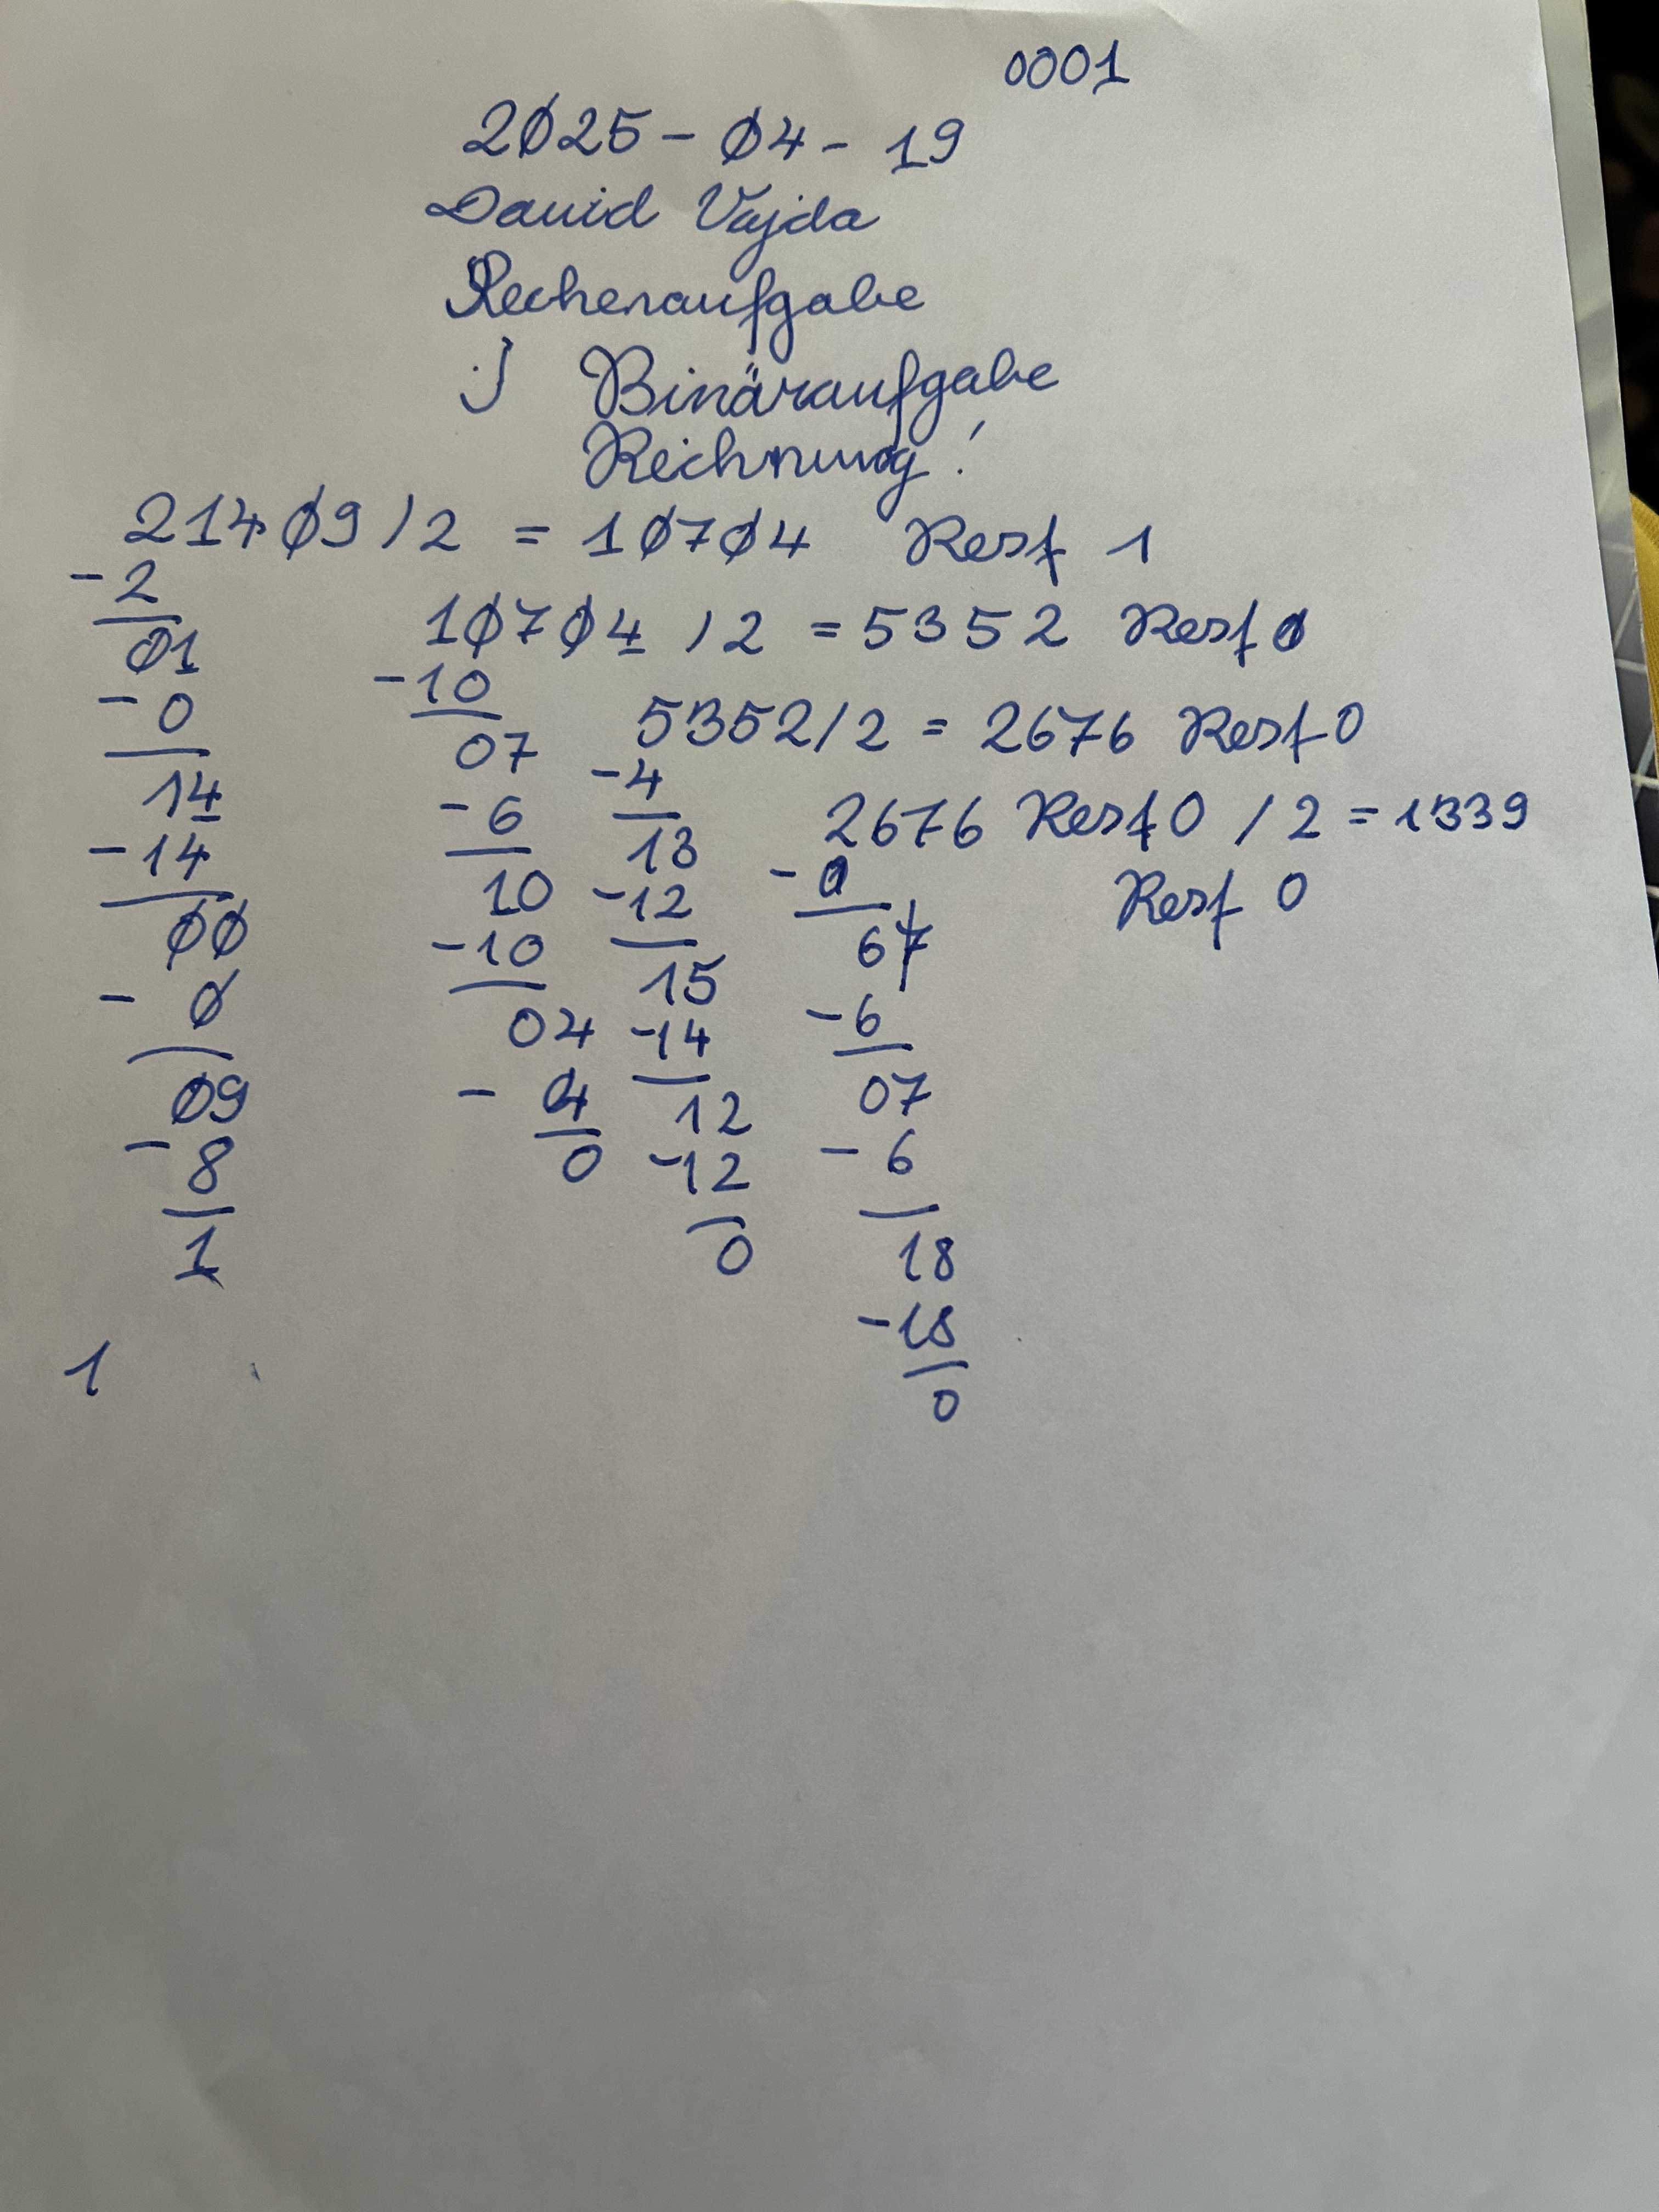 0001
2025 - 04 - 19
David Vajda
Rechenaufgabe
:) Binäraufgabe
Rechnung!
21409 / 2 = 10704 Rest 1
- 2
01
- 0
14
- 14
00
- 0
09
- 8
1
1
10704 / 2 = 5352 Rest 0
- 10
07
- 6
10
- 10
04
- 4
0
5352 / 2 = 2676 Rest 0
- 4
13
- 12
15
- 14
12
- 12
0
2676 Rest 0 / 2 = 1339
Rest 0
- 0
67
- 6
07
- 6
18
- 18
0